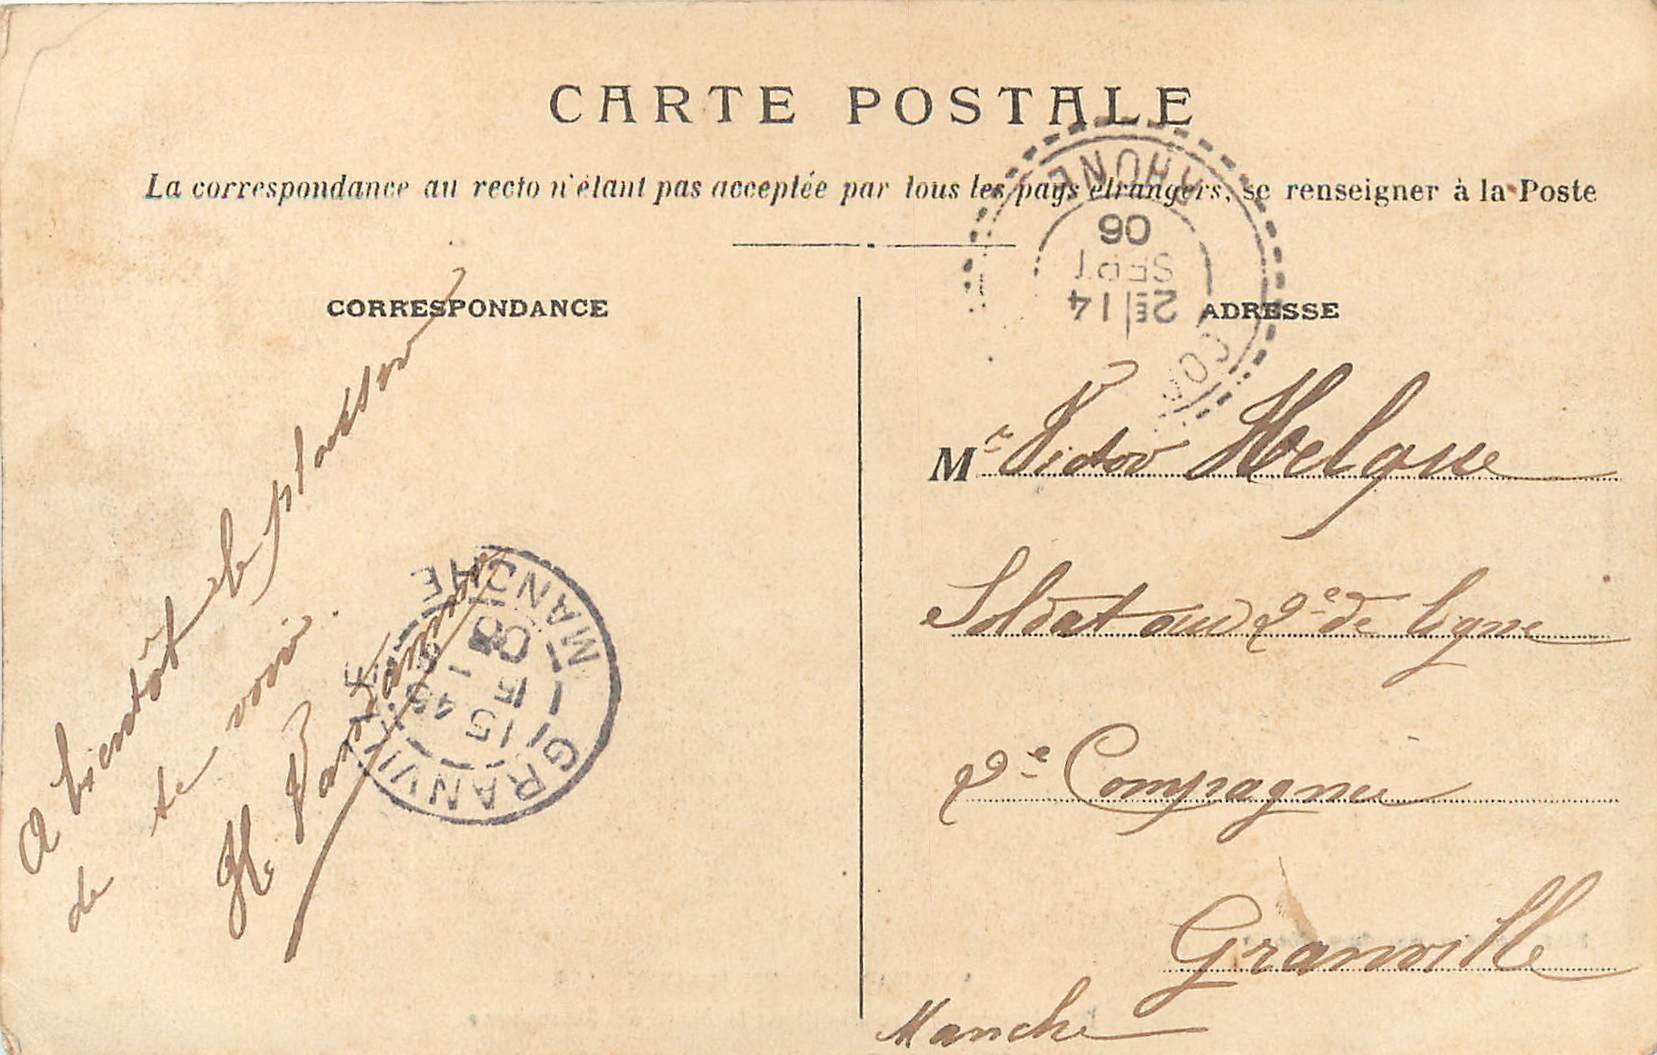 CARTE POSTALE
La correspondance au recto n'étant pas acceptée par tous les pays étrangers, se renseigner à la Poste
CORRESPONDANCE
A bientôt le plaisir
de te voir.
H.
GRANVILLE
MANCHE
15 45
15 - 9
06
ADRESSE
RHONE
2E 14
SEPT
06
Mr Victor Helque
Soldat au 2e de ligne
2e Compagnie
Granville
Manche